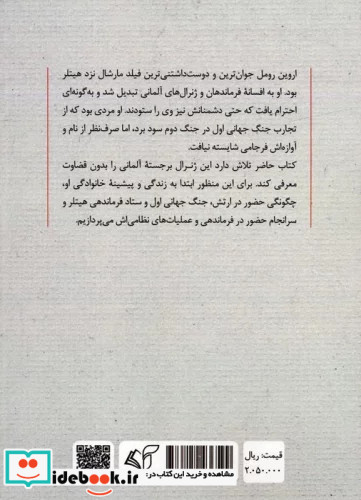 اروین رومل جوان‌ترین و دوست‌داشتنی‌ترین فیلد مارشال نزد هیتلر
بود. او به افسانهٔ فرماندهان و ژنرال‌های آلمانی تبدیل شد و به‌گونه‌ای
احترام یافت که حتی دشمنانش نیز وی را ستودند. او مردی بود که از
تجارب جنگ جهانی اول در جنگ دوم سود برد، اما صرف‌نظر از نام و
آوازه‌اش فرجامی شایسته نیافت.
کتاب حاضر تلاش دارد این ژنرال برجستهٔ آلمانی را بدون قضاوت
معرفی کند. برای این منظور ابتدا به زندگی و پیشینهٔ خانوادگی او،
چگونگی حضور در ارتش، جنگ جهانی اول و ستاد فرماندهی هیتلر و
سرانجام حضور در فرماندهی و عملیات‌های نظامی‌اش می‌پردازیم.
قیمت: ریال
۲.۰۵۰.۰۰۰
مشاهده و خرید این کتاب در:
idebook.ir